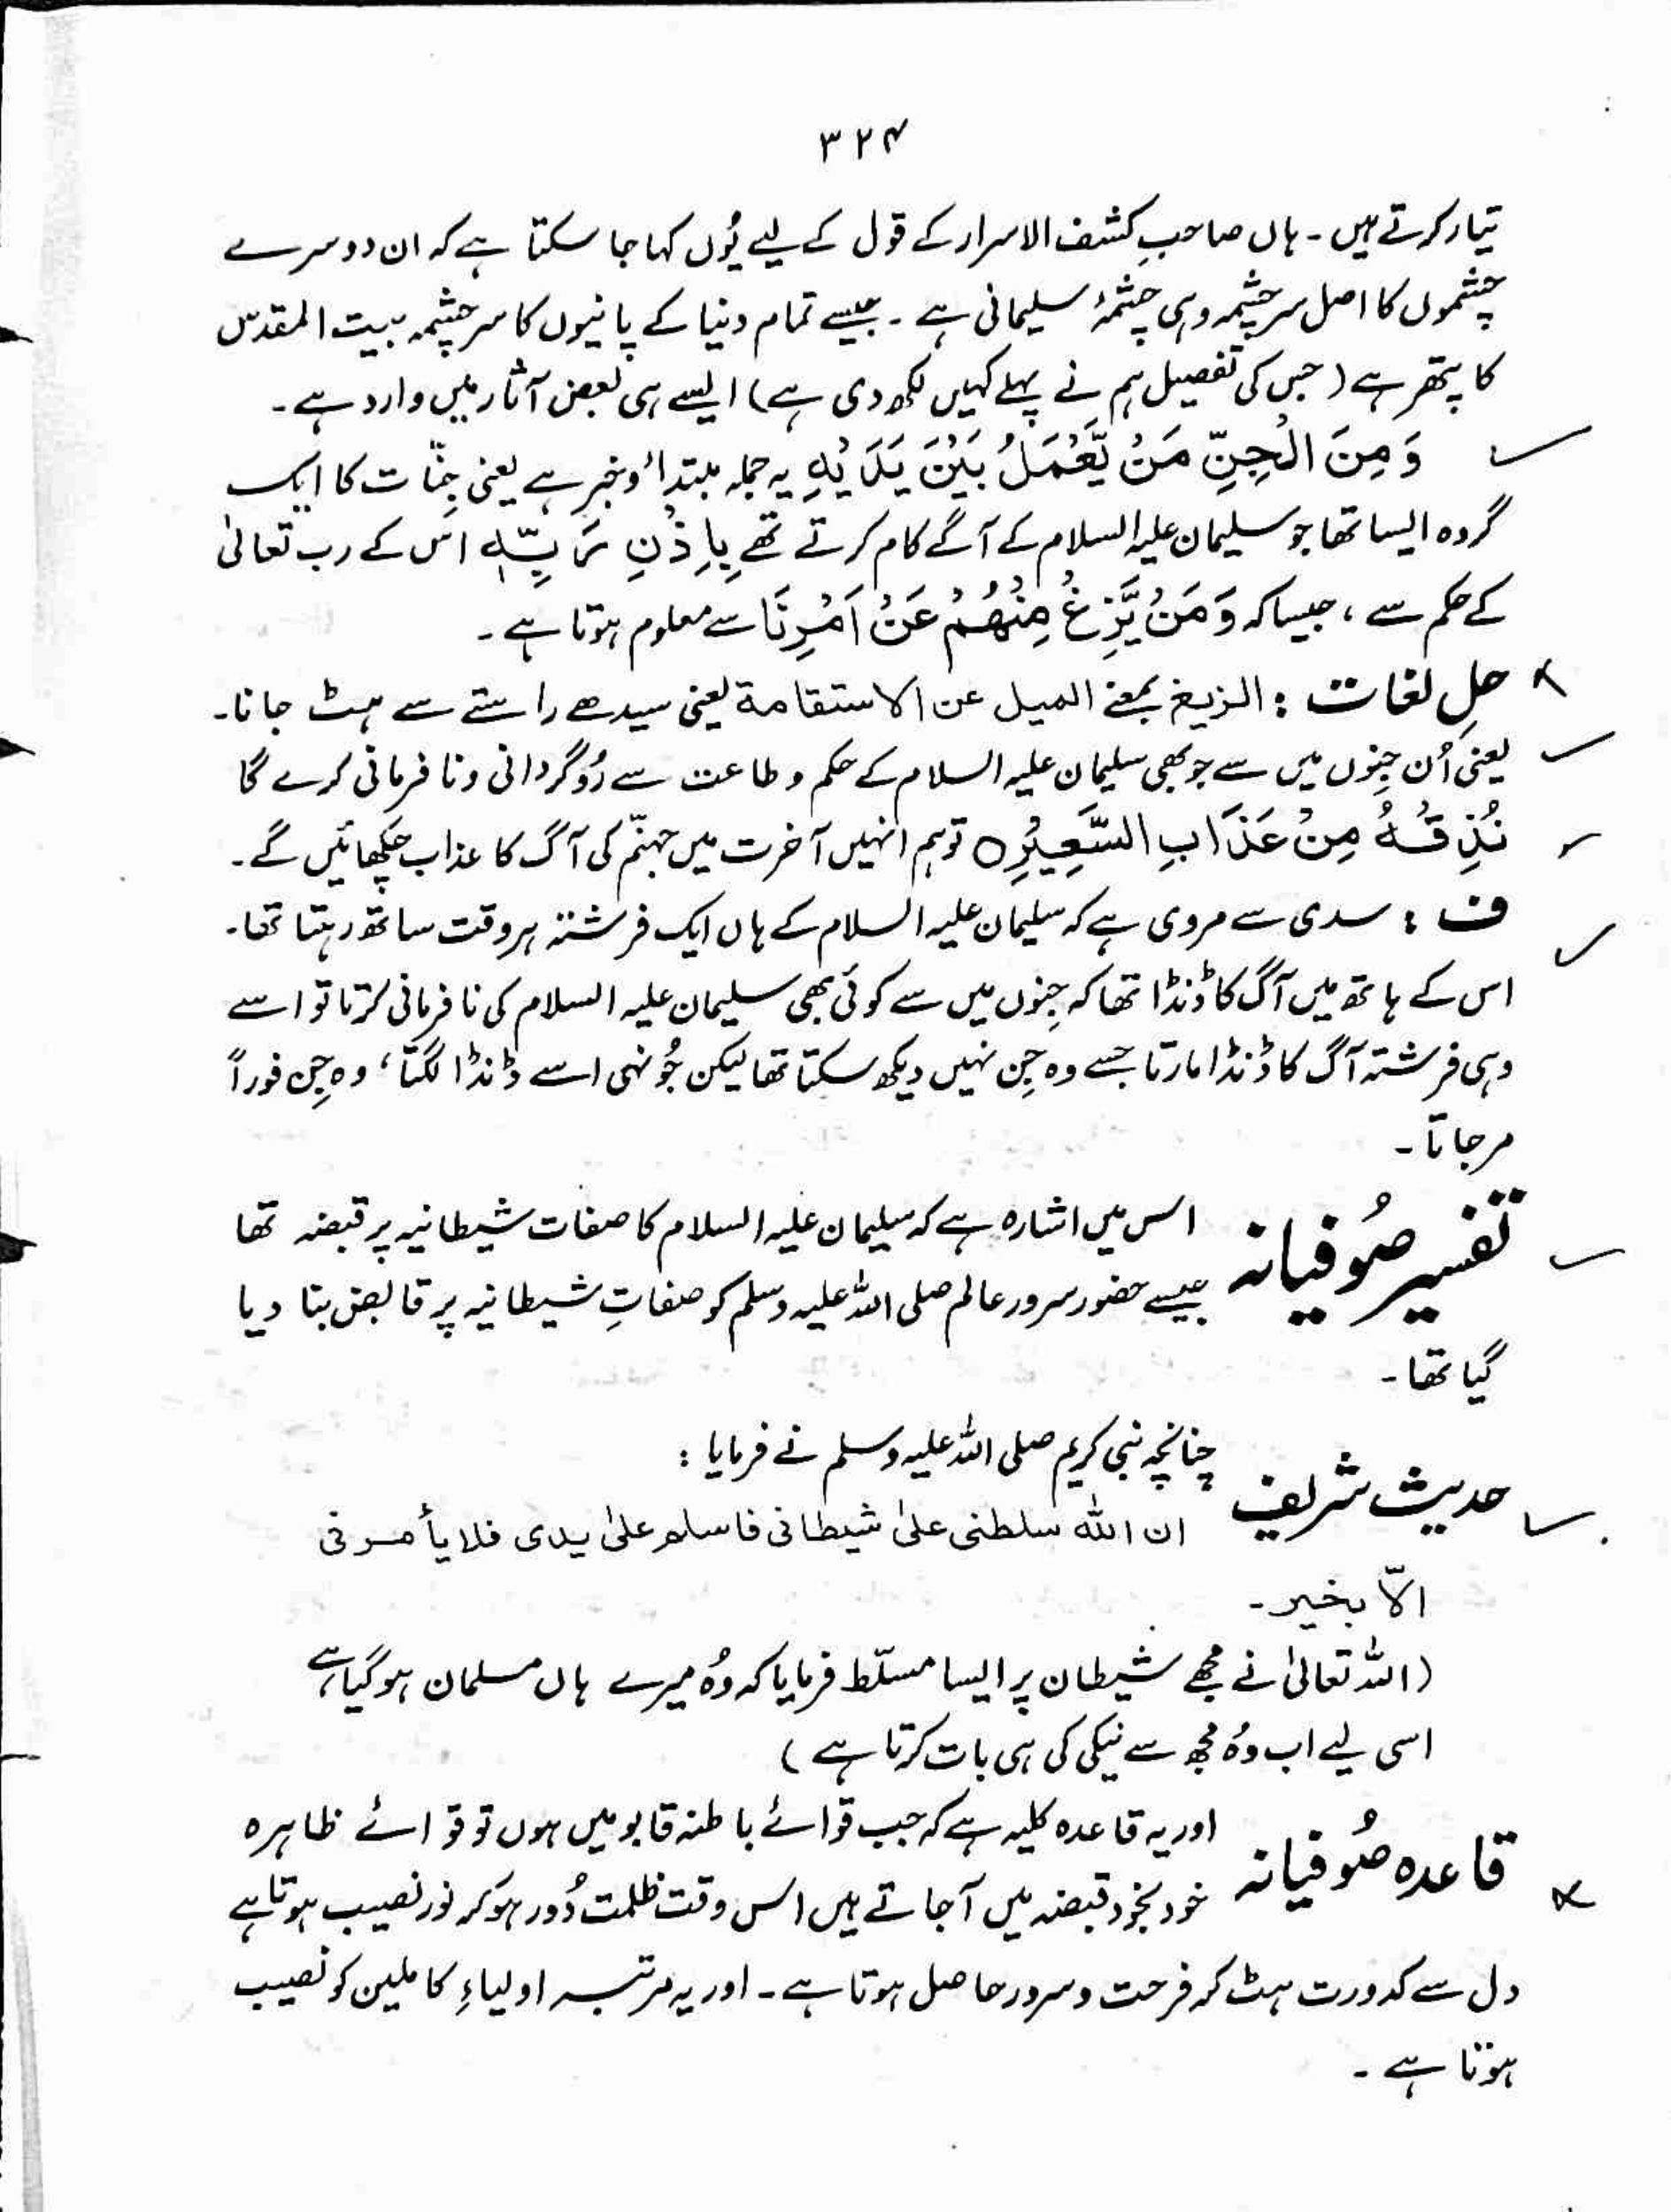 ۳۲۴
تیار کرتے ہیں ۔ ہاں صاحبِ کشف الاسرار کے قول کے لیے یُوں کہا جا سکتا ہے کہ ان دوسرے
چشموں کا اصل سرچشمہ وہی چشمۂ سلیمانی ہے ۔ جیسے تمام دنیا کے پانیوں کا سرچشمہ بیت المقدس
کا پتھر ہے ( جس کی تفصیل ہم نے پہلے کہیں لکھ دی ہے ) ایسے ہی بعض آثار میں وارد ہے ۔
وَمِنَ الْجِنِّ مَنْ يَّعْمَلُ بَيْنَ يَدَيْهِ یہ جملہ مبتداء وخبر ہے یعنی جِنّات کا ایک
گروہ ایسا تھا جو سلیمان علیہ السلام کے آگے کام کرتے تھے بِاِذْنِ رَبِّهٖ اس کے رب تعالیٰ
کے حکم سے ، جیسا کہ وَمَنْ يَّزِغْ مِنْهُمْ عَنْ اَمْرِنَا سے معلوم ہوتا ہے ۔
حلِ لغات : الزیغ بمعنے المیل عن الاستقامة یعنی سیدھے راستے سے ہٹ جانا۔
یعنی اُن جِنوں میں سے جو بھی سلیمان علیہ السلام کے حکم و طاعت سے رُوگردانی ونافرمانی کرے گا
نُذِقْهُ مِنْ عَذَابِ السَّعِيْرِ○ تو ہم انہیں آخرت میں جہنّم کی آگ کا عذاب چکھائیں گے ۔
ف : سدی سے مروی ہے کہ سلیمان علیہ السلام کے ہاں ایک فرشتہ ہر وقت ساتھ رہتا تھا۔
اس کے ہاتھ میں آگ کا ڈنڈا تھا کہ جِنوں میں سے کوئی بھی سلیمان علیہ السلام کی نافرمانی کرتا تو اسے
وہی فرشتہ آگ کا ڈنڈا مارتا جسے وہ جِن نہیں دیکھ سکتا تھا لیکن جُونہی اسے ڈنڈا لگتا ، وہ جِن فوراً
مر جاتا ۔
تفسیر صُوفیانہ اس میں اشارہ ہے کہ سلیمان علیہ السلام کا صفات شیطانیہ پر قبضہ تھا
جیسے حضور سرور عالم صلی اللہ علیہ وسلم کو صفاتِ شیطانیہ پر قابض بنا دیا
گیا تھا ۔
حدیث شریف چنانچہ نبی کریم صلی اللہ علیہ وسلم نے فرمایا :
ان اللہ سلطنی علیٰ شیطانی فاسلم علیٰ یدی فلا یأمرنی
الّا بخیر ۔
( اللہ تعالیٰ نے مجھے شیطان پر ایسا مسلّط فرمایا کہ وُہ میرے ہاں مسلمان ہو گیا ہے
اسی لیے اب وُہ مجھ سے نیکی کی ہی بات کرتا ہے )
قاعدہ صُوفیانہ اور یہ قاعدہ کلیہ ہے کہ جب قوائے باطنہ قابو میں ہوں تو قوائے ظاہرہ
خود بخود قبضہ میں آجاتے ہیں اس وقت ظلمت دُور ہو کر نور نصیب ہوتا ہے
دل سے کدورت ہٹ کر فرحت وسرور حاصل ہوتا ہے ۔ اور یہ مرتبہ اولیاءِ کاملین کو نصیب
ہوتا ہے ۔